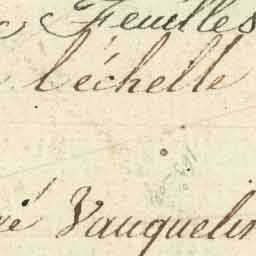 Feuilles
l'échelle
Vauquelin